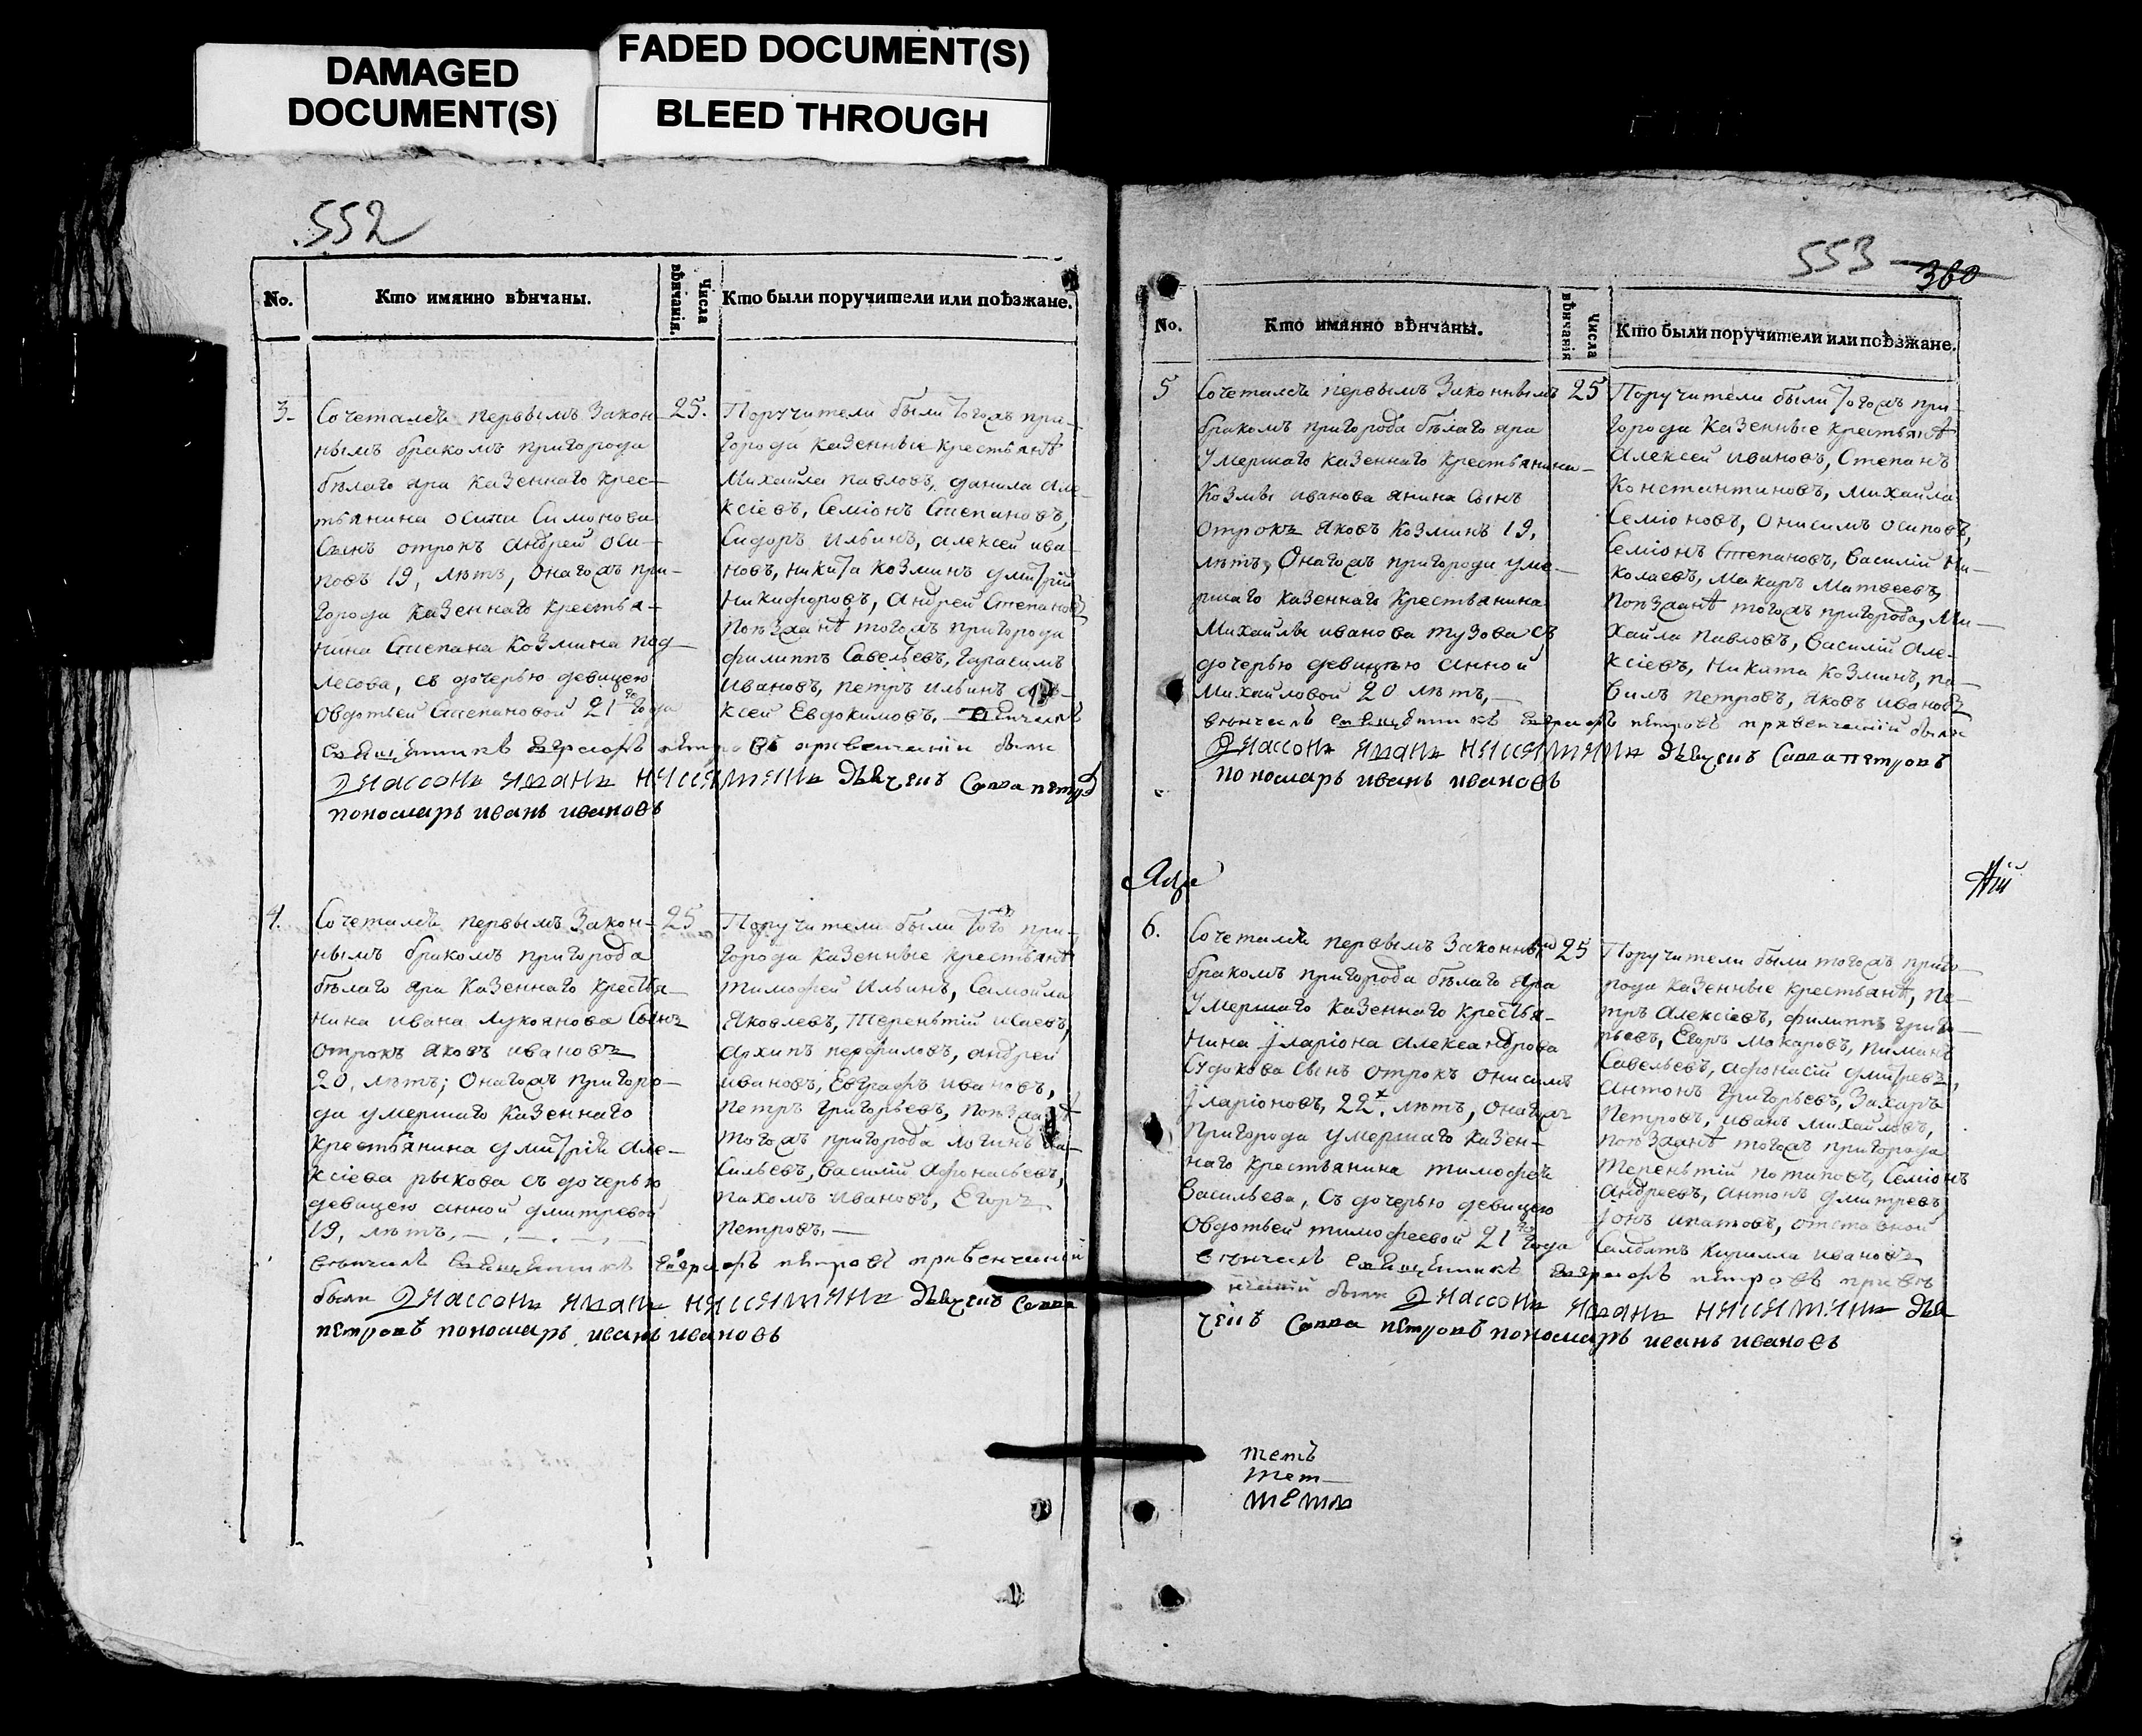 DAMAGED
DOCUMENT(S)
FADED DOCUMENT(S)
BLEED THROUGH
552
No.
Кто имянно вѣнчаны.
Числа
вѣнчанія.
Кто были поручители или поѣзжане.
3.
Сочетался первымъ закон-
нымъ бракомъ пригорода
бѣлаго яра казеннаго крес-
тьянина осипа Симонова
Сынъ отрокъ андрей оси-
повъ 19, лѣтъ, Онагожъ при-
города казеннаго крестья-
нина Степана Козмина под-
лесова, съ дочерью девицею
Овдотьей Степановой 21 го года
25.
Поручители были тогожъ при-
города казенные крестьянѣ
Михайла павловъ, данила але-
ксіевъ, Семіонъ Степановъ,
Сидоръ Ильинъ, алексей ива-
новъ, никита козминъ дмитрій
Никифоровъ, андрей Степановъ
Поѣзжанѣ тогожъ пригорода
филиппъ Савельевъ, гарасимъ
Ивановъ, петръ ильинъ але-
ксей Евдокимовъ. Венчалъ
священникъ Евграфъ петровъ привенчании были
Диаconъ иванъ дьячекъ Савва петровъ
пономаръ иванъ ивановъ
4.
Сочетался первымъ закон-
нымъ бракомъ пригорода
бѣлаго яра казеннаго крестья-
нина ивана Лукоянова Сынъ
отрокъ яковъ ивановъ
20, лѣтъ; Онагожъ пригоро-
да умершаго казеннаго
крестьянина дмитрій але-
ксіева рыкова съ дочерью
девицею анной дмитревой
19, лѣтъ,
25
Поручители были тогожъ при-
города казенные крестьянѣ
тимофей Ильинъ, Самойла
Яковлевъ, терентий исаевъ,
архипъ перфиловъ, андрей
ивановъ, Евграфъ ивановъ,
петръ григорьевъ, поѣзжанѣ
тогожъ пригорода логинъ ва-
сильевъ, василий афонасьевъ,
пахомъ ивановъ, Егоръ
петровъ.
венчалъ священникъ Евграфъ петровъ привенчании
были Диаconъ иванъ дьячекъ Савва
петровъ пономаръ иванъ ивановъ
553
360
No.
Кто имянно вѣнчаны.
Числа
вѣнчанія
Кто были поручители или поѣзжане.
5
Сочетался первымъ Законнымъ
бракомъ пригорода бѣлаго яра
Умершаго казеннаго крестьянина
Козмы иванова янина Сынъ
отрокъ яковъ козминъ 19,
лѣтъ, Онагожъ пригорода уме-
ршаго казеннаго крестьянина
Михайлы иванова тузова съ
дочерью девицею анной
Михайловой 20 лѣтъ,
25
Поручители были тогожъ при-
города казенные крестьянѣ
алексей ивановъ, Степанъ
Константиновъ, михайла
Семіоновъ, онисимъ осиповъ,
Семіонъ Степановъ, василий ни-
колаевъ, макаръ Матвеевъ,
поѣзжанѣ тогожъ пригорода, Ми-
хайла павловъ, василий але-
ксіевъ, никита козминъ, па-
вилъ петровъ, яковъ ивановъ
венчалъ священникъ Евграфъ петровъ привенчании были
Диаconъ иванъ дьячекъ Савва петровъ
пономаръ иванъ ивановъ
6.
Сочетался первымъ законным
бракомъ пригорода бѣлаго яра
Умершаго казеннаго крестья-
нина Iларіона александрова
Судокова Сынъ отрокъ онисимъ
Iларіоновъ, 22 х. лѣтъ, онагожъ
пригорода умершаго казен-
наго крестьянина тимофея
Васильева, съ дочерью девицею
Овдотьей тимофеевой 21 го года
25
Поручители были тогожъ приго-
рода казенные крестьянѣ, пе-
тръ алексіевъ, филиппъ григо-
рьевъ, Егоръ Макаровъ, пиманъ
Савельевъ, афонасий дмитревъ,
антонъ григорьевъ, Захаръ
петровъ, иванъ михайловъ,
поѣзжанѣ тогожъ пригорода
терентий потаповъ, Семіонъ
андреевъ, антонъ дмитревъ
Iонъ ипатовъ, отставной
Салдатъ Кирилла ивановъ
венчалъ священникъ Евграфъ петровъ приве
нчании были Диаconъ иванъ дья
чекъ Савва петровъ пономаръ иванъ ивановъ
теть
тет
теть